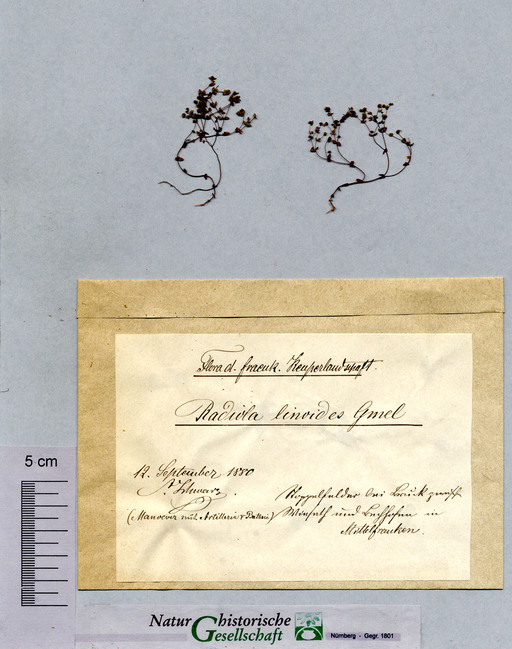 Flora d. fraenk. Keuperlandschaft.
Radiola linoides Gmel
12. September 1880
A. Schwarz.
(Manoever mit Artillerie &
Stoppelfelder bei Bruck
und Bechhofen in
Mittelfranken.
5 cm
Naturhistorische
Gesellschaft
Nürnberg - Gegr. 1801